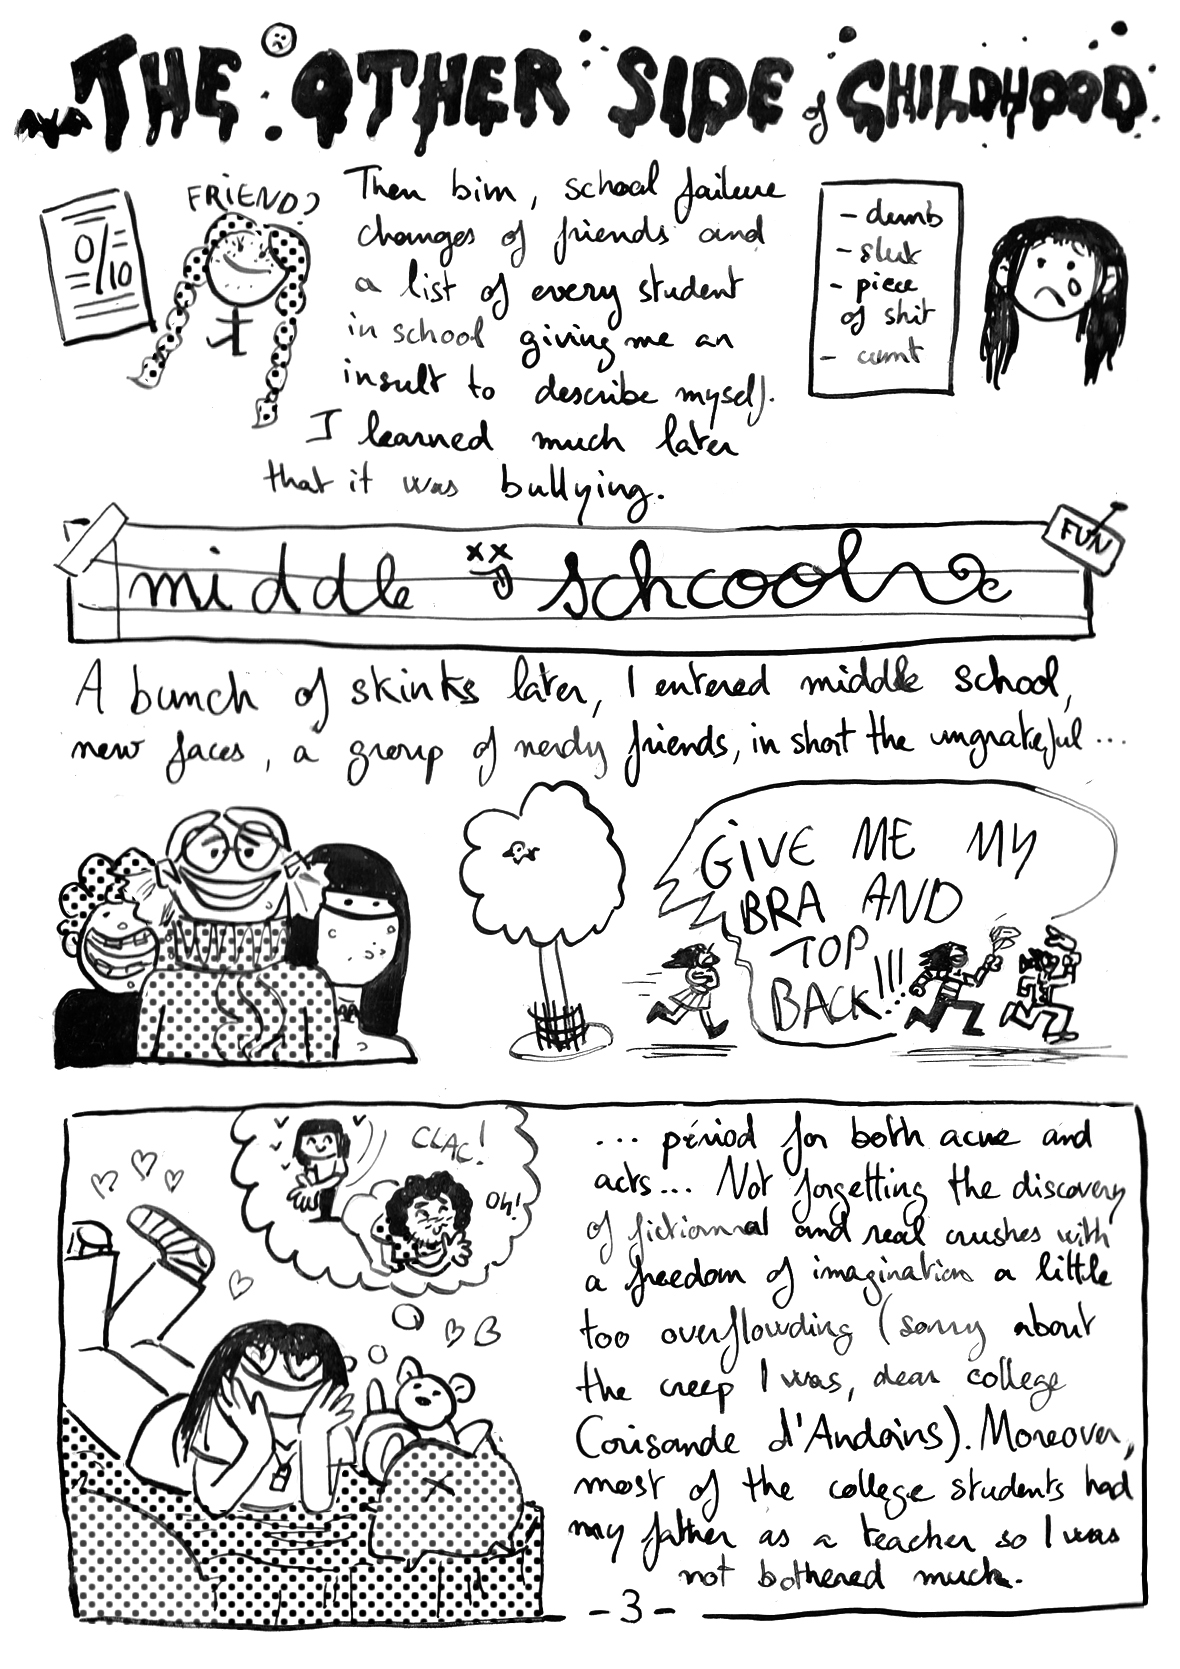 THE OTHER SIDE of CHILDHOOD
0/10
FRIEND?
Then bim, school failure
changes of friends and
a list of every student
in school giving me an
insult to describe myself.
I learned much later
that it was bullying.
- dumb
- slut
- piece
of shit
- cumt
middle schcool
FUN
A bunch of skinks later, I entered middle school,
new faces, a group of nerdy friends, in short the ungrateful ...
GIVE ME MY
BRA AND
TOP
BACK!!!
CLAC!
Oh!
... period for both acne and
acts... Not forgetting the discovery
of fictionnal and real crushes with
a freedom of imagination a little
too overflowding (sorry about
the creep I was, dear college
Corisande d'Andoins). Moreover,
most of the college students had
my father as a teacher so I was
not bothered much.
- 3 -